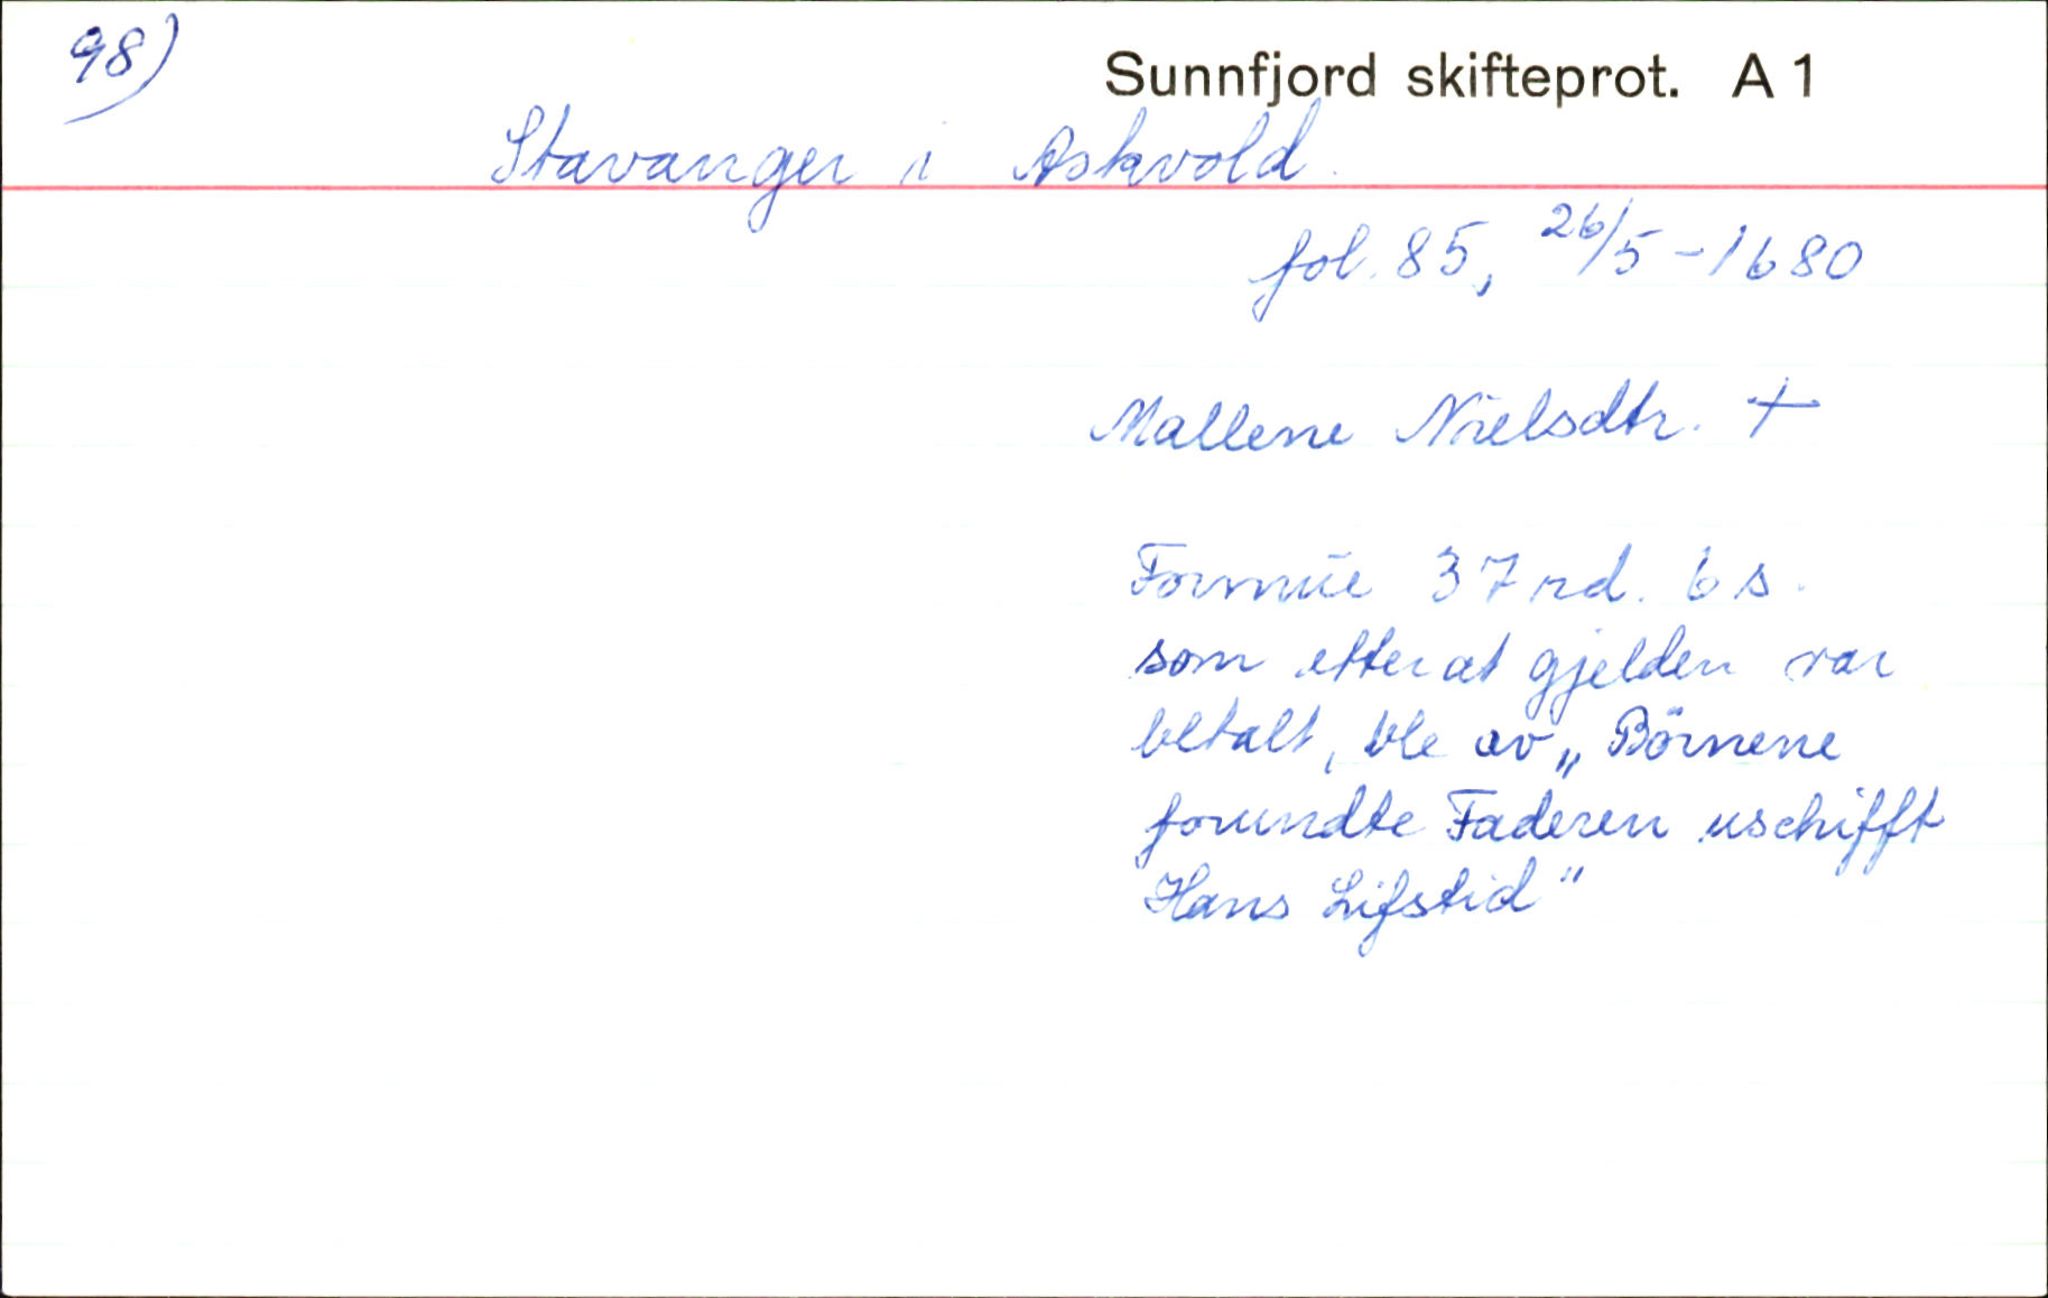 98)
Sunnfjord skifteprot. A 1
Stavanger i Askvold.
fol. 85, 26/5 - 1680
Mallene Nielsdtr. +
Formue 37 rd. 6 s.
som etter at gjelden var
betalt, ble av „Börnene
forundte Faderen uschifft
Hans Lifstid"